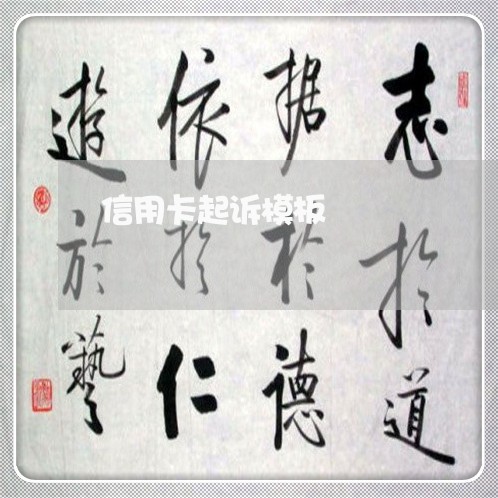 志於道
据於德
依於仁
遊於藝
信用卡起诉模板